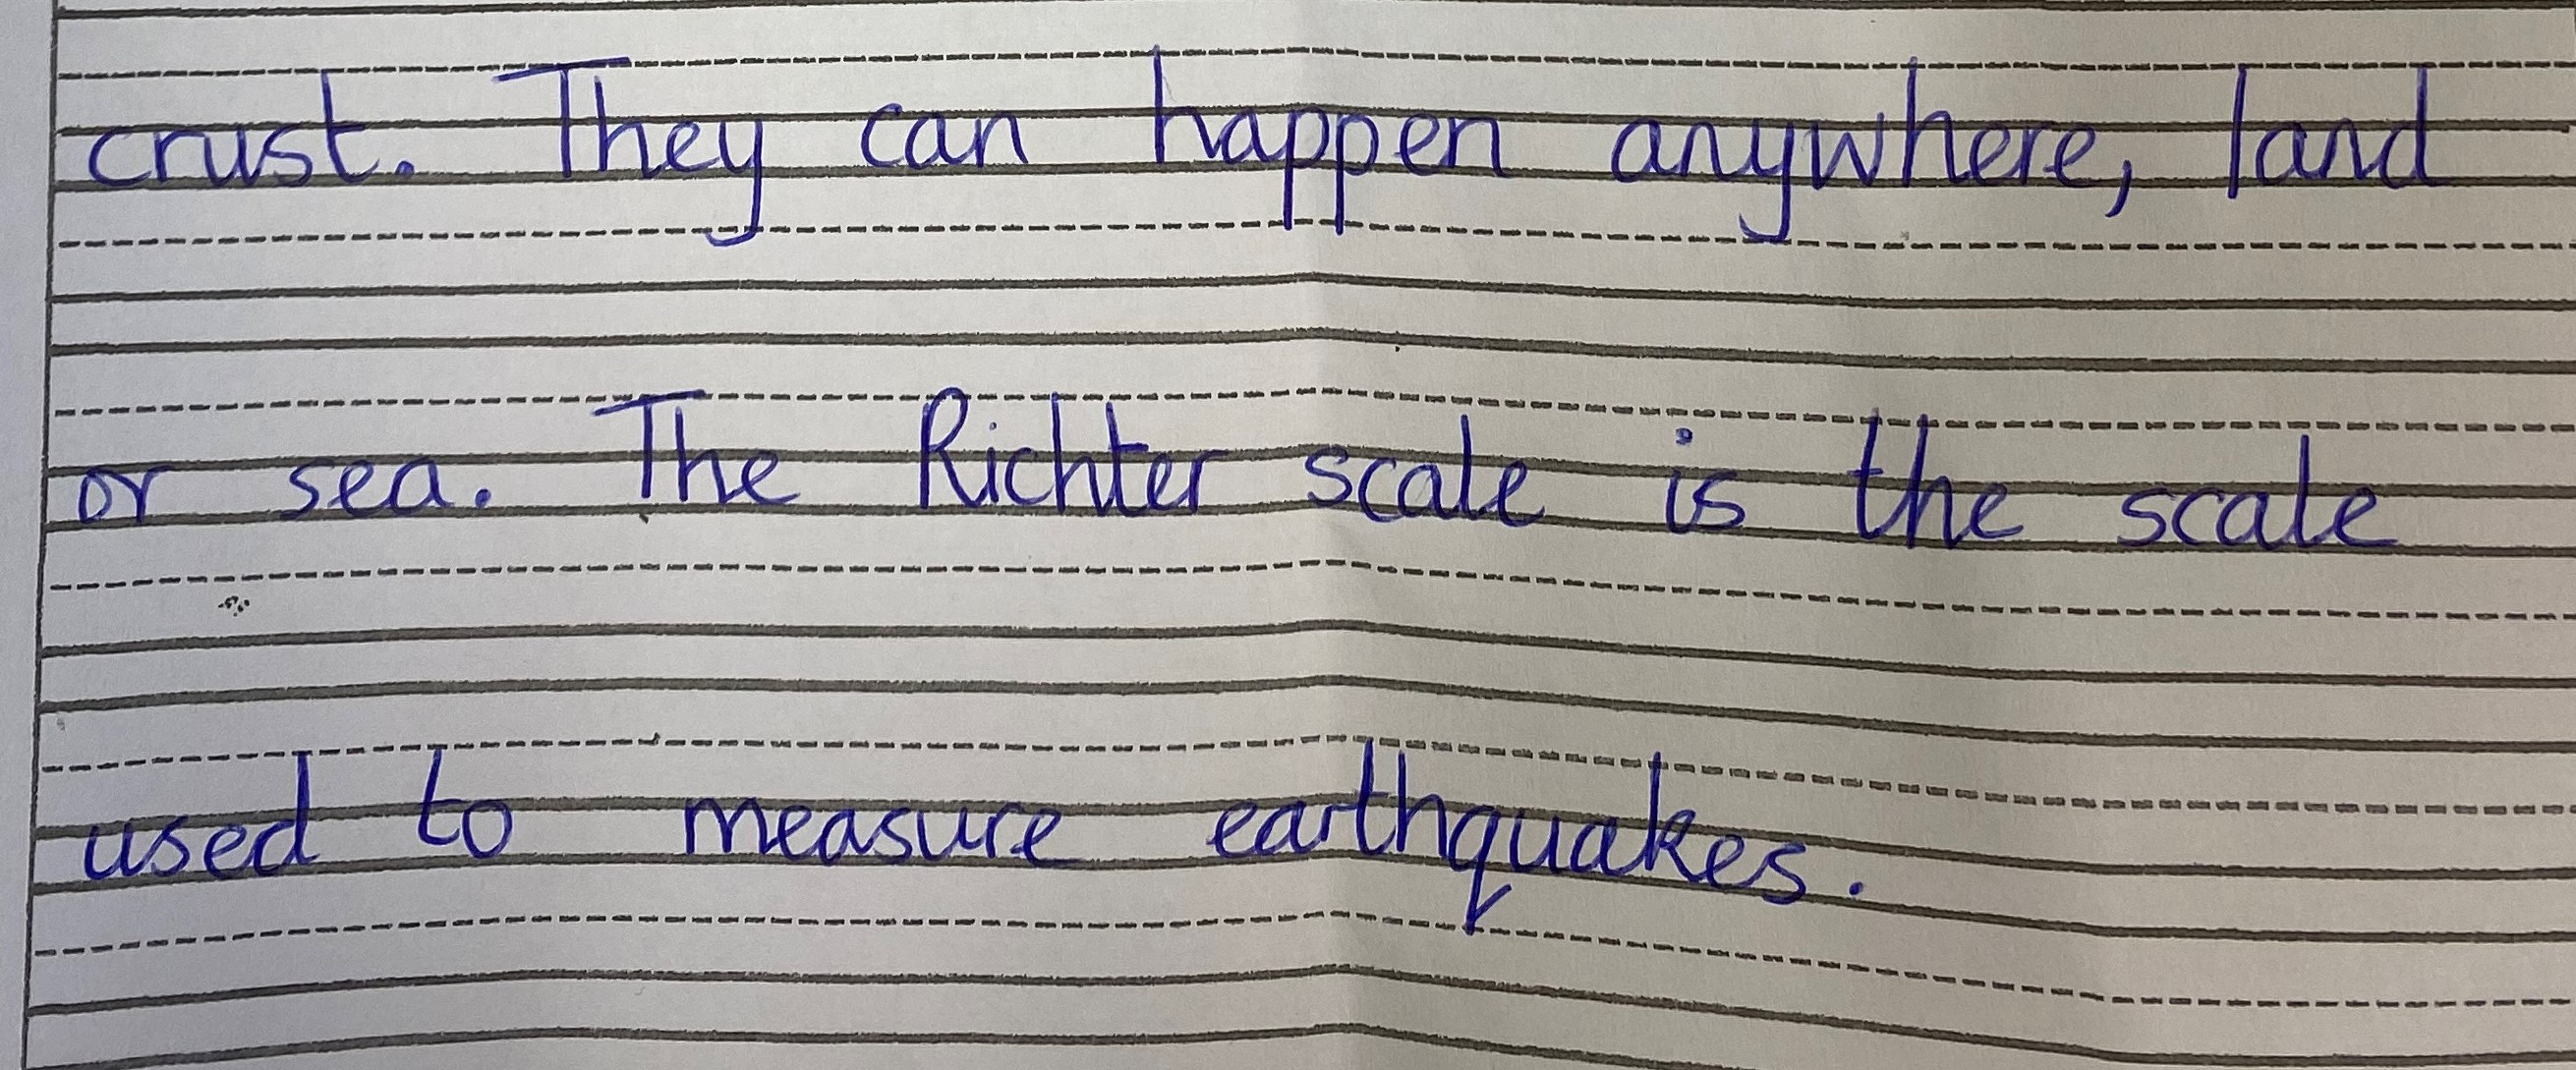 crust. They can happen anywhere, land
or sea. The Richter scale is the scale
used to measure earthquakes.